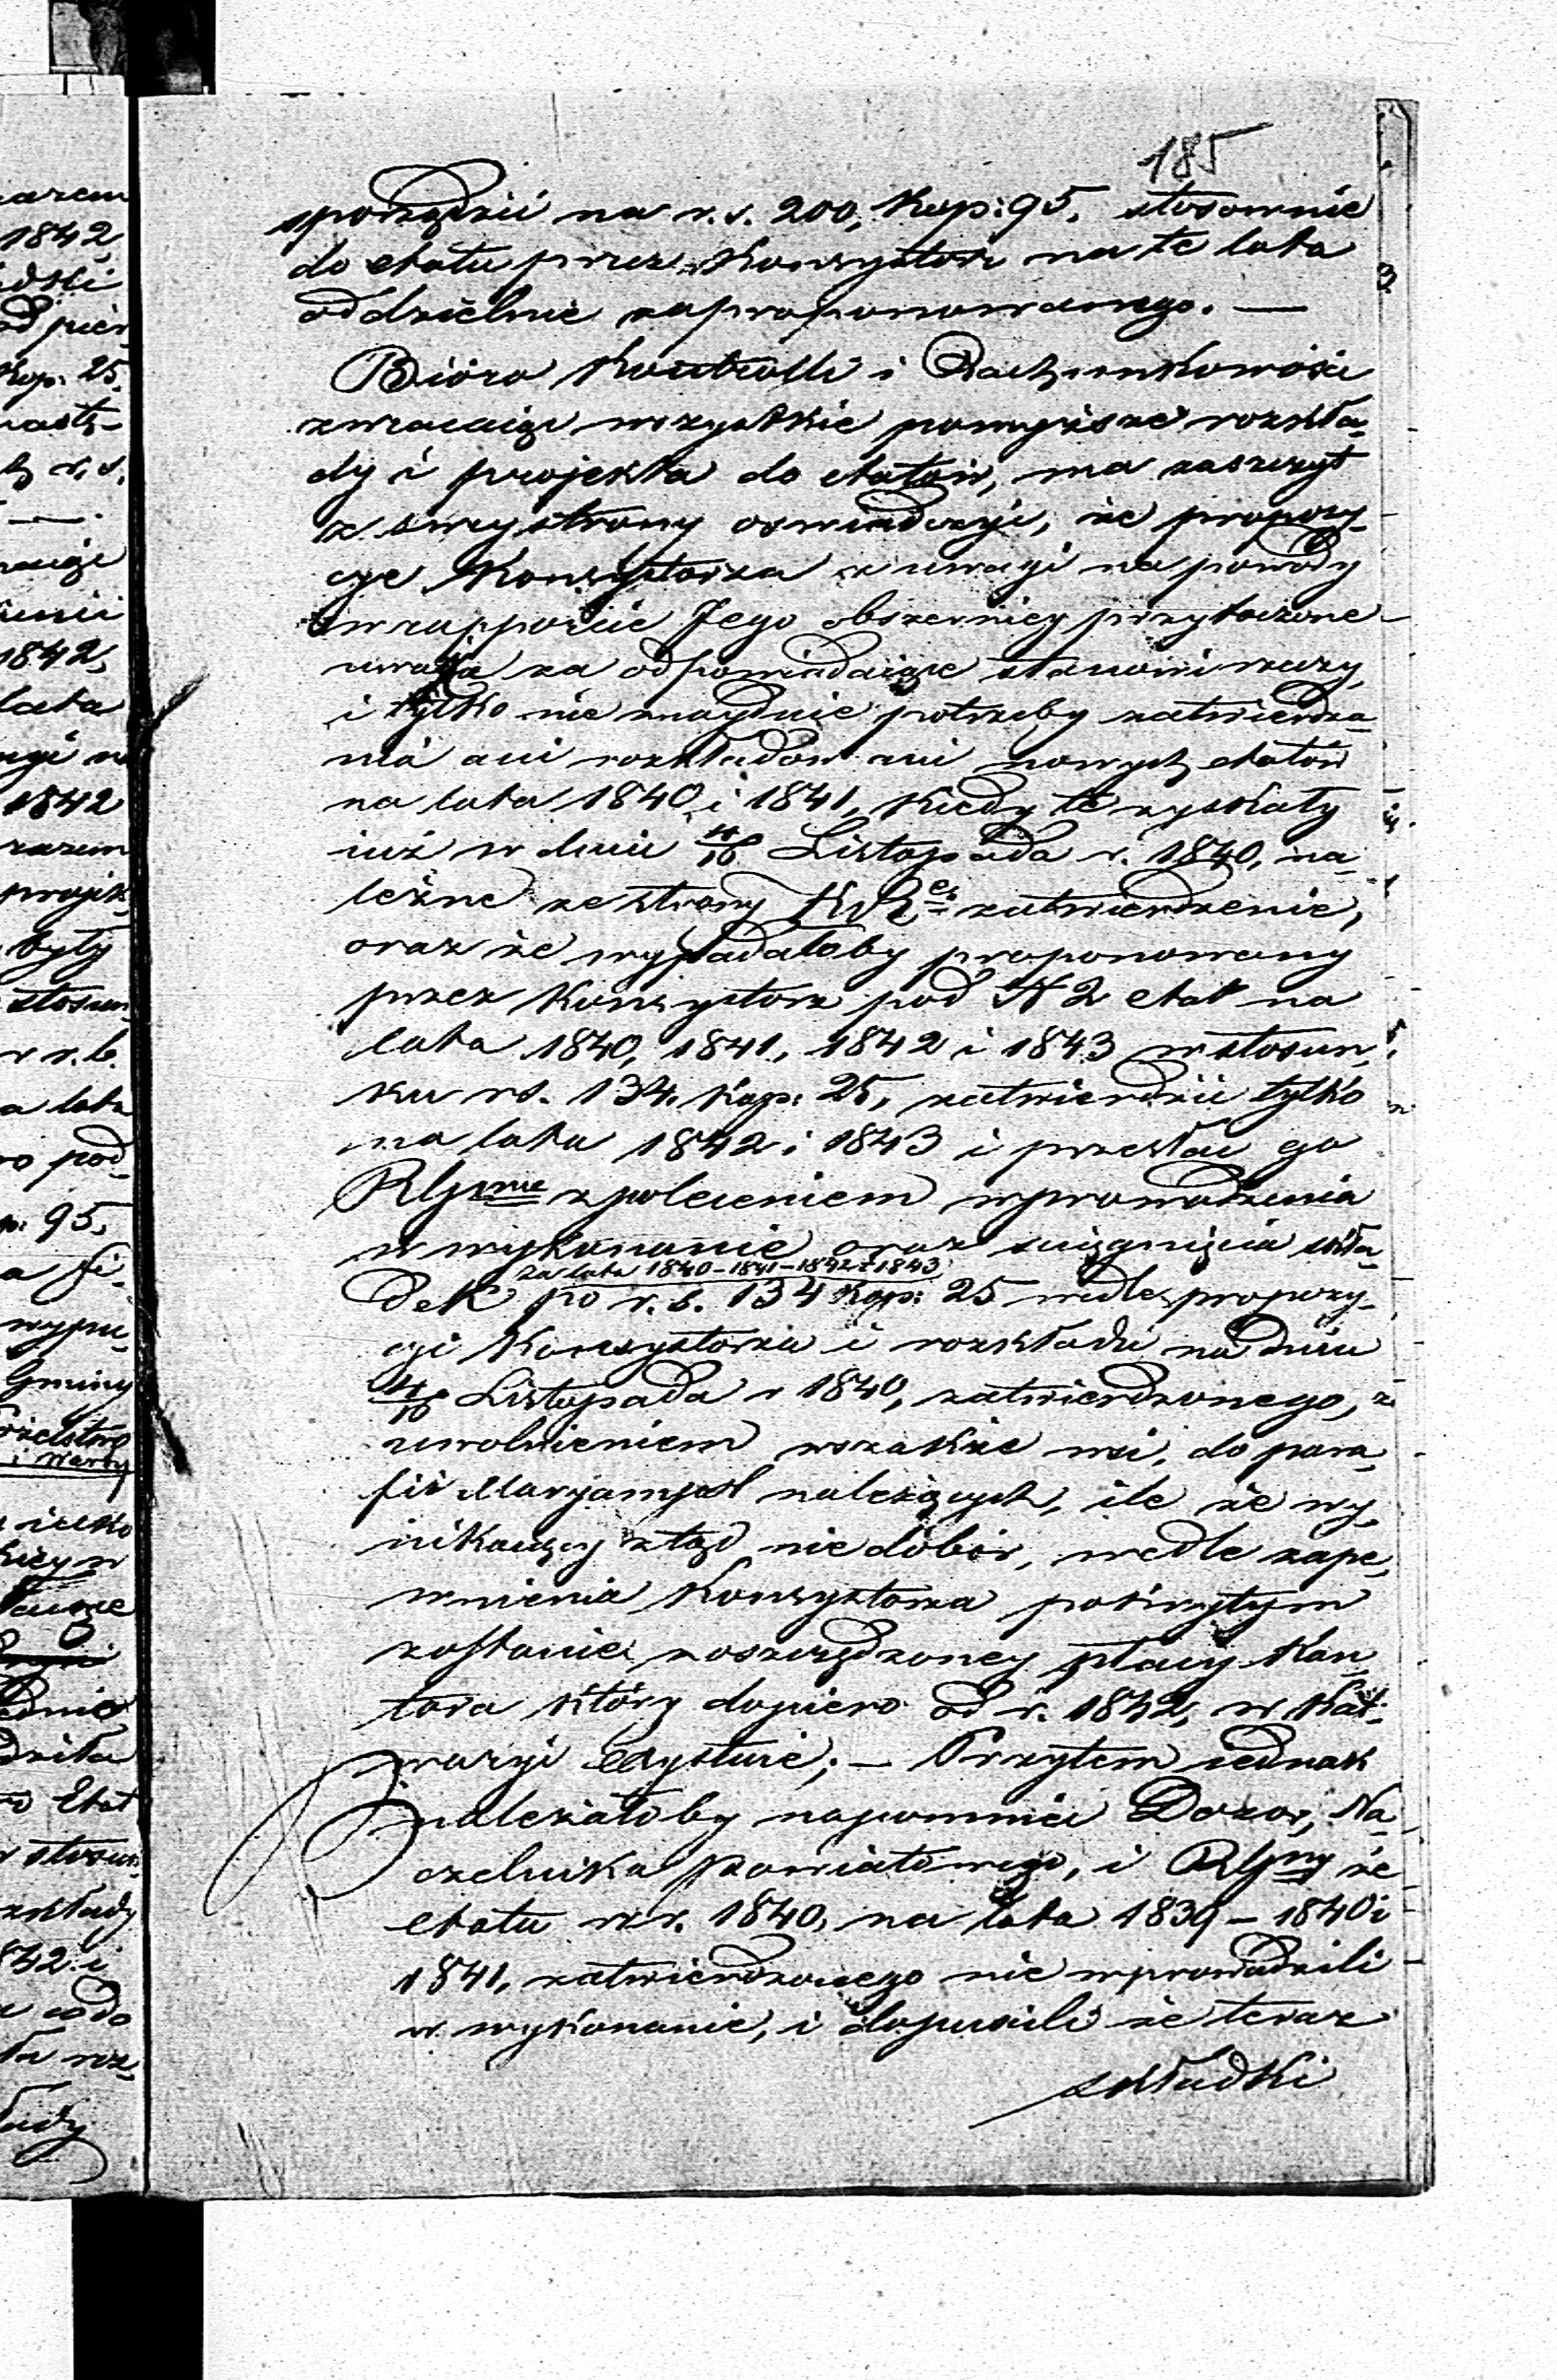 185
sporządzić na r. s. 200, Kop: 95. stosownie
do etatu przez Konsystorz na te lata
oddzielnie zaproponowanego. —
Bióro Kontrolli i Rachunkowości
zwracaiąc wszystkie powyższe rozkła-
dy i projekta do etatów, ma zaszczyt
z swey strony oswiadczyć, że propozy-
cye Konsystorza z uwagi na powody
w rapporcie Jego obszerniey przytoczone
uważa za odpowiadaiące stanowi rzeczy,
i tylko nie znayduie potrzeby zatwierdza-
nia ani rozkładów ani nowych etatów
na lata 1840 i 1841, kiedy te zyskały
iuż w dniu 4/16 Listopada r. 1840, na-
leżne ze strony zatwierdzenie,
oraz że wypadałoby proponowany
przez Konsystorz pod N 2 etat na
lata 1840, 1841, 1842 i 1843 w stosun-
ku rs. 134. Kop: 25, zatwierdzić tylko
na lata 1842 i 1843 i przesłać go
z poleceniem wprowadzenia
w wykonanie oraz ściągnięcia skła-
za lata 1840-1841-1842 i 1843
dek po r. s. 134 Kop: 25 wedle propozy-
cyi Konsystorza i rozkładu na dniu
4/16 Listopada r 1840, zatwierdzonego, z
uwolnieniem wszakże wsi, do para-
fii Maryampol należących, ile że wy-
nikaiący ztąd niedobór, wedle zape-
wnienia Konsystorza pokrytym
zostanie z oszczędzoney płacy Kan-
tora który dopiero od r. 1842, w Kal-
waryi exystuie; — Przytem iednak
należałoby napomnieć Dozór, Na-
czelnika Powiatowego, i że
etatu w r. 1840, na lata 1839 – 1840 i
1841, zatwierdzonego nie wprowadzili
w wykonanie, i dopuścili że teraz
składki